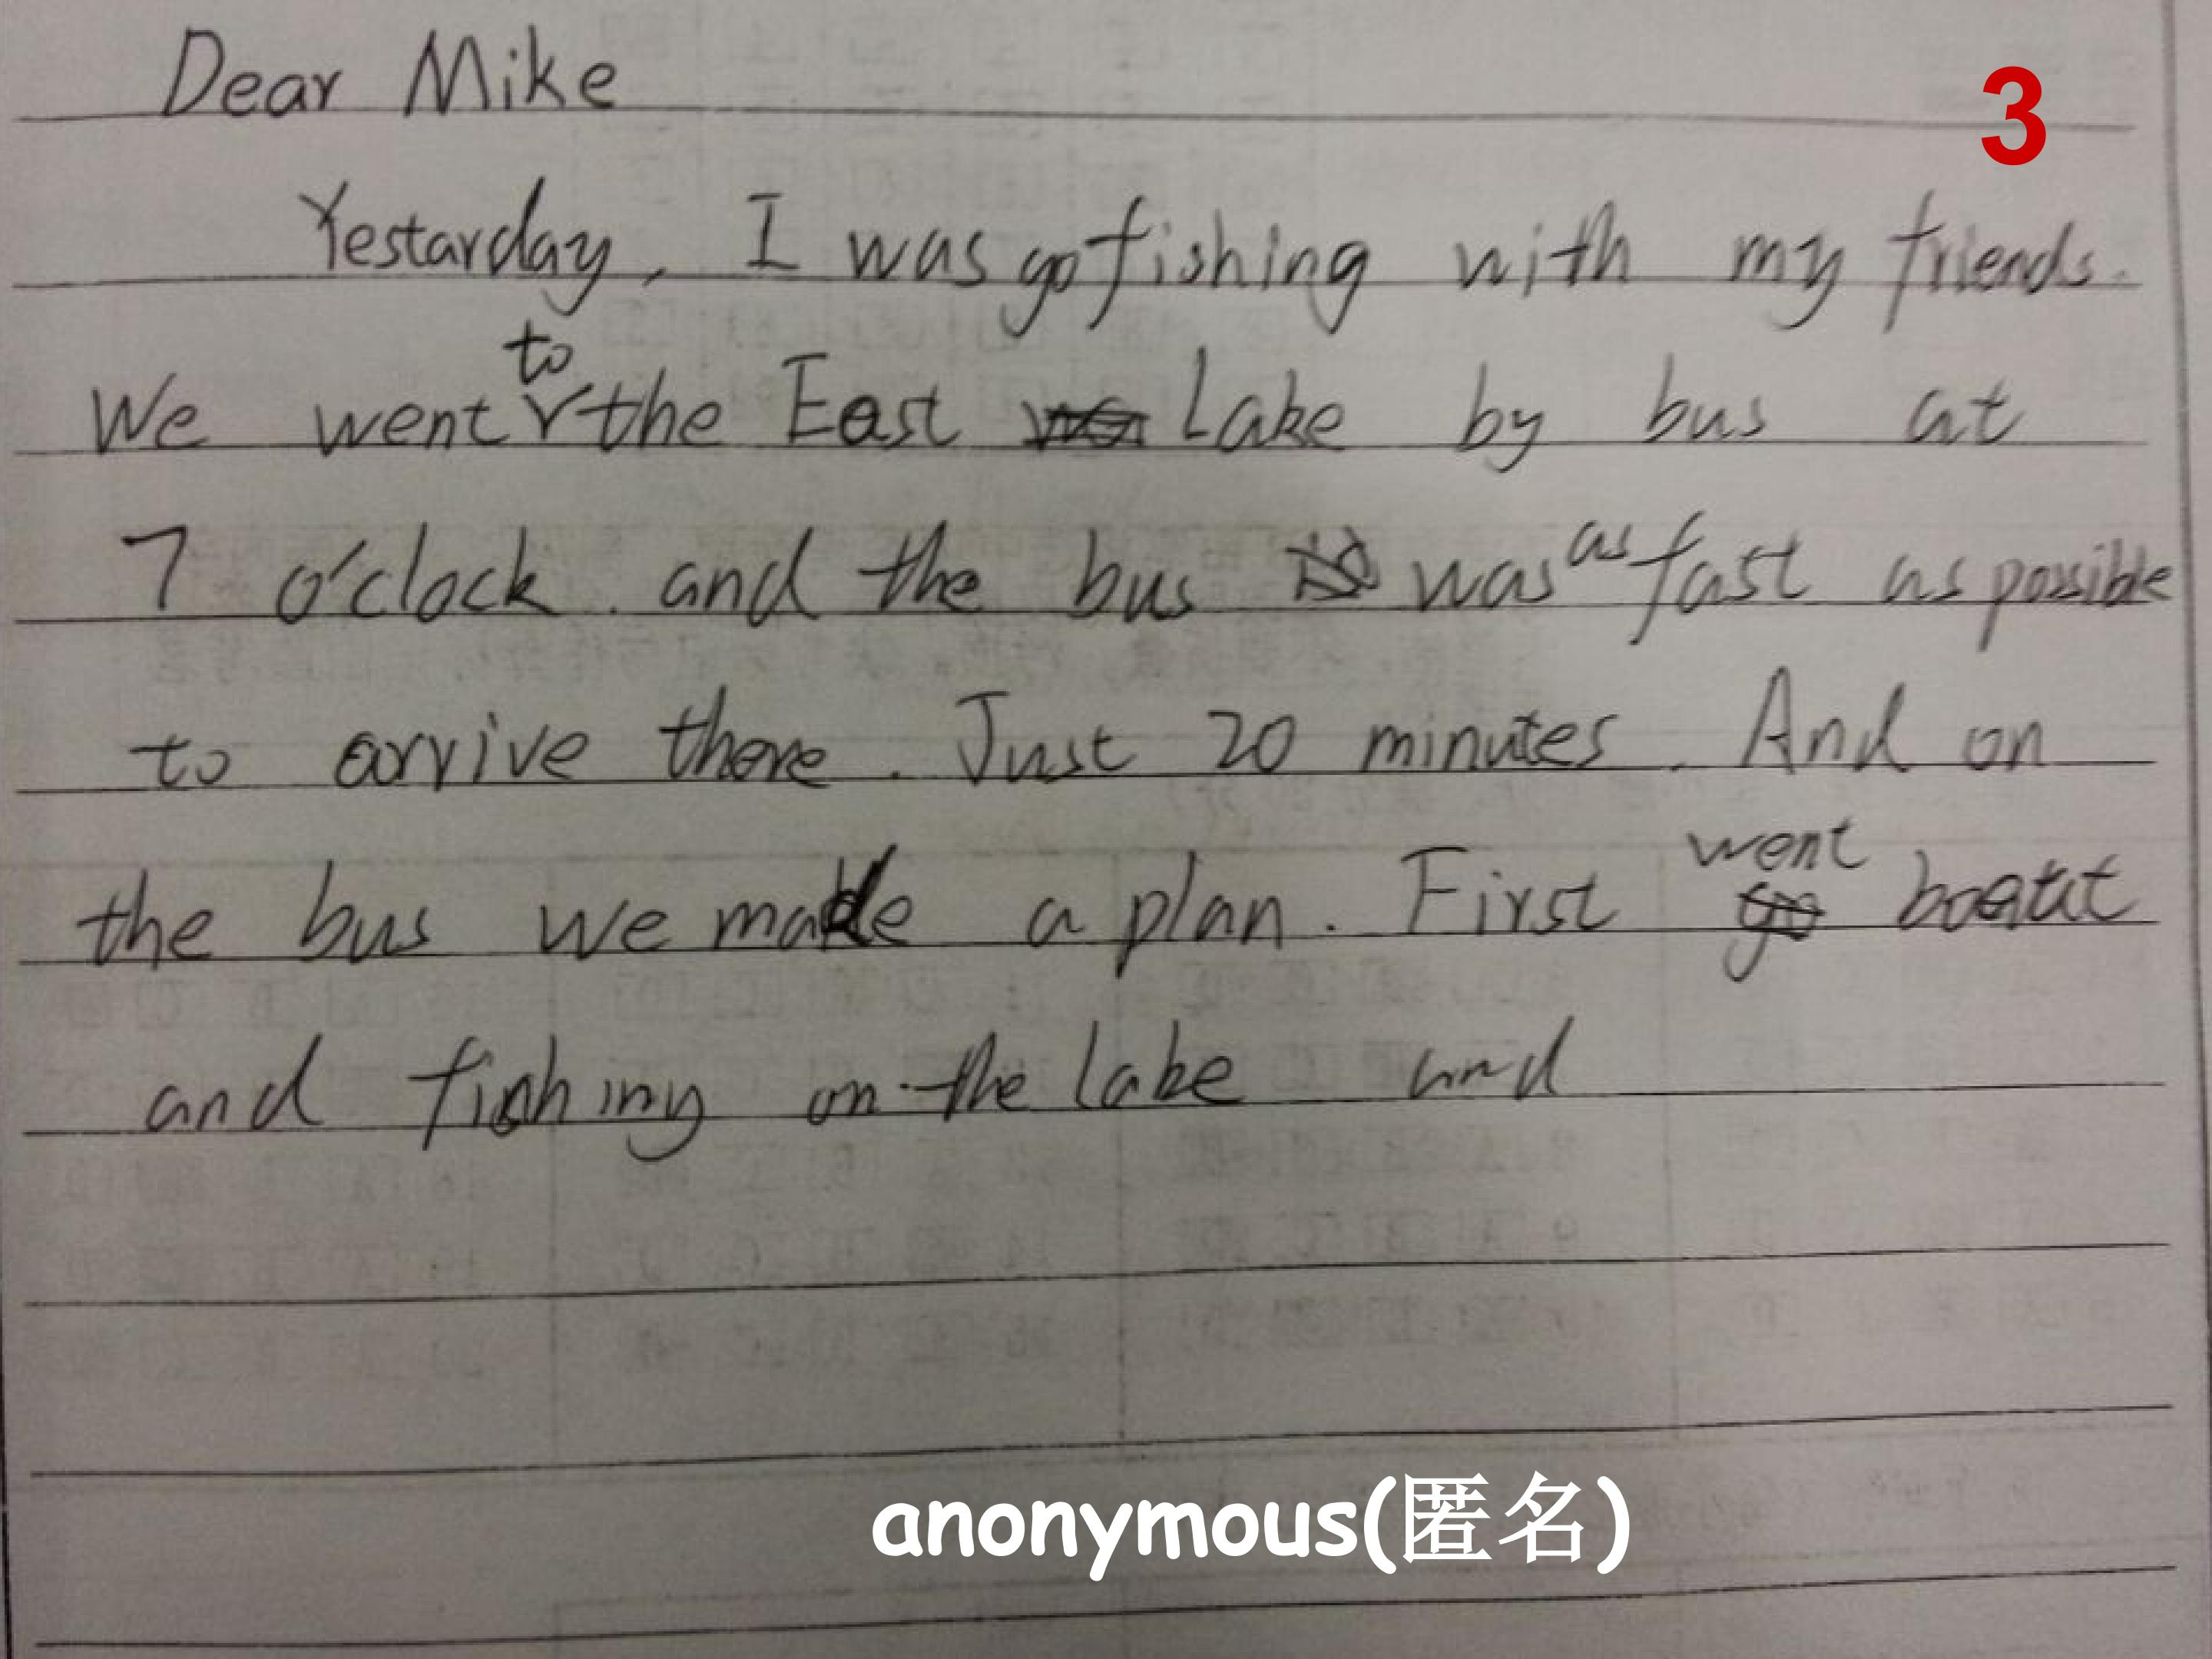 Dear Mike
3
Yestarday, I was go fishing with my friends.
We went to the East Lake by bus at
7 o'clock. and the bus was as fast as possible
to arrive there. Just 20 minutes. And on
the bus we made a plan. First went boat
and fishing on the lake and
anonymous(匿名)